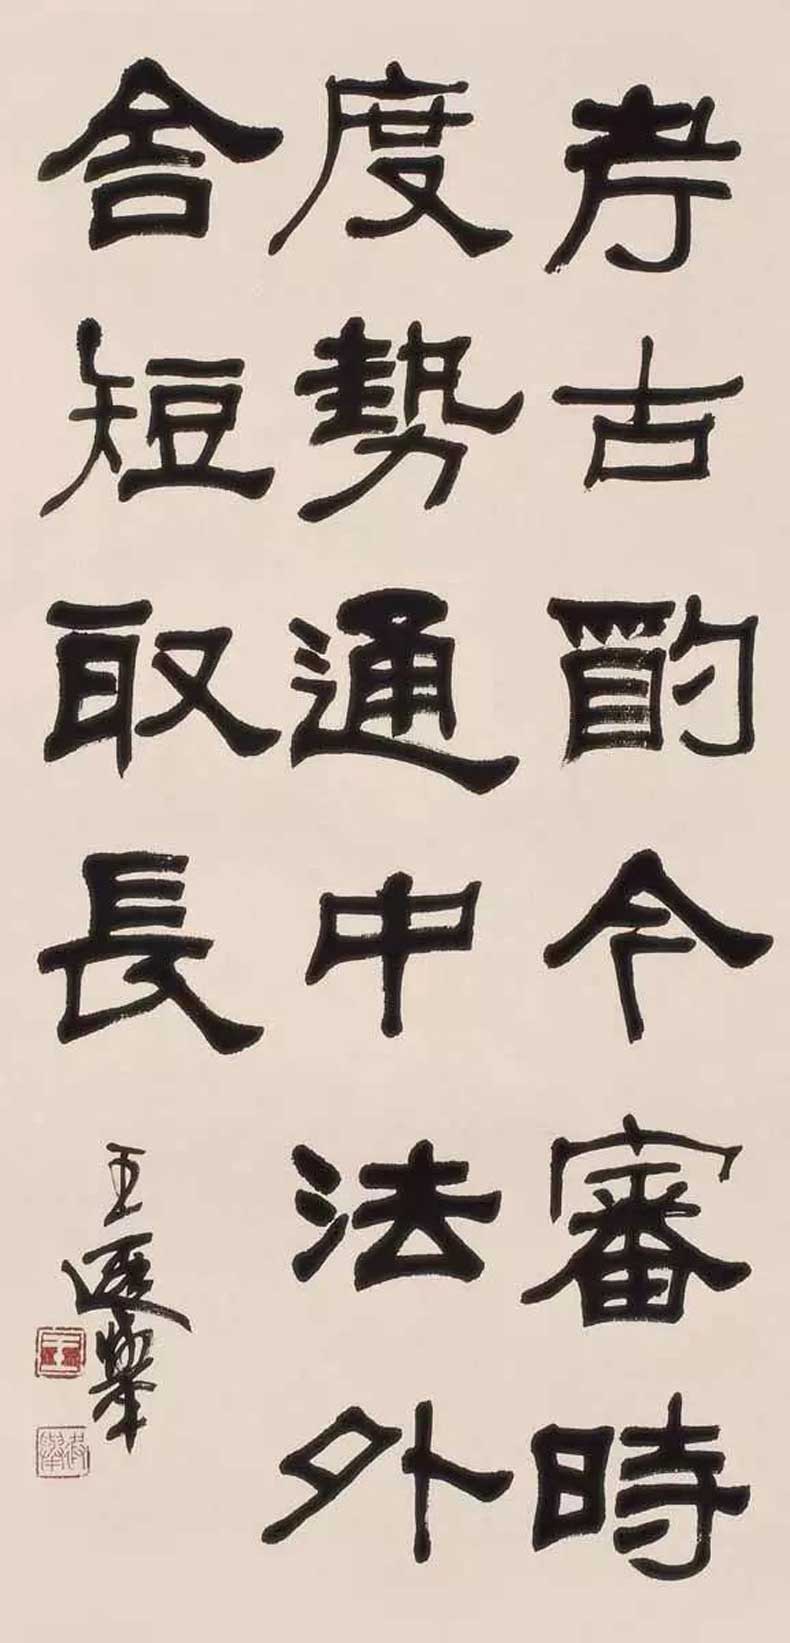 考古酌今審時
度勢通中法外
舍短取長
王遐舉